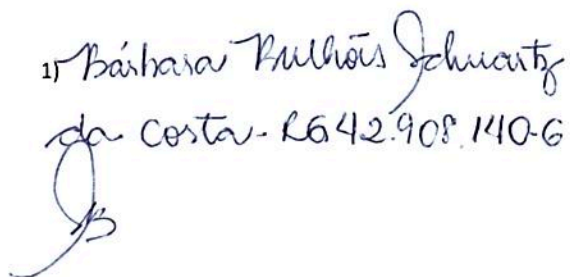 1) Bárbara Bulhões Schwartz
da Costa - RG 42.908.140-6